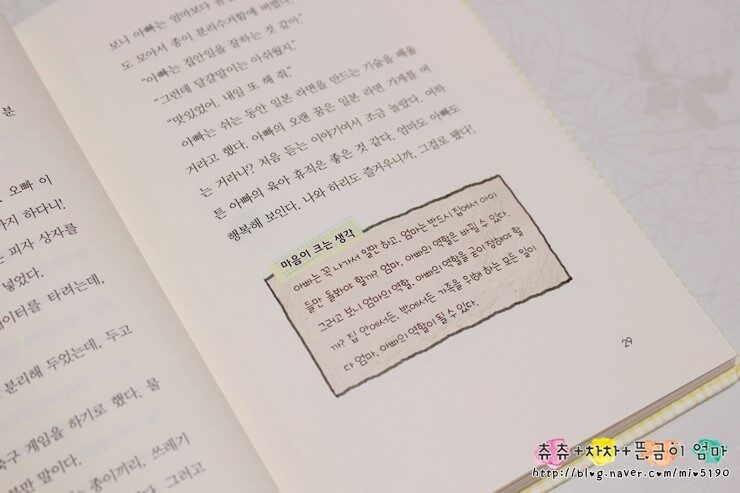 분
오빠 이
가지 하다니!
는 피자 상자를
넣었다.
이터를 타려는데,
분리해 두었는데, 두고
축구 게임을 하기로 했다. 물
뿐만 말이다.
는 종이끼리, 쓰레기
다. 그리고
보니 아빠는 엄마보다
도 모아서 종이 분리수거함에 버렸다.
“아빠는 집안일을 잘하는 것 같아.”
“그런데 달걀말이는 아쉬웠지.”
“맛있었어, 내일 또 해 줘.”
아빠는 쉬는 동안 일본 라면을 만드는 기술을 배울
거라고 했다. 아빠의 오랜 꿈은 일본 라면 가게를 여
는 거라나? 처음 듣는 이야기여서 조금 놀랐다. 여하
튼 아빠의 육아 휴직은 좋은 것 같다. 엄마도 아빠도
행복해 보인다. 나와 하리도 즐거우니까, 그걸로 됐다!
마음이 크는 생각
아빠는 꼭 나가서 일만 하고, 엄마는 반드시 집에서 아이
들만 돌봐야 할까? 엄마, 아빠의 역할은 바뀔 수 있다.
그러고 보니 엄마의 역할, 아빠의 역할을 굳이 정해야 할
까? 집 안에서든, 밖에서든 가족을 위해 하는 모든 일이
다 엄마, 아빠의 역할이 될 수 있다.
29
츄츄+차차+뜬금이 엄마
http://blog.naver.com/mi♥5190